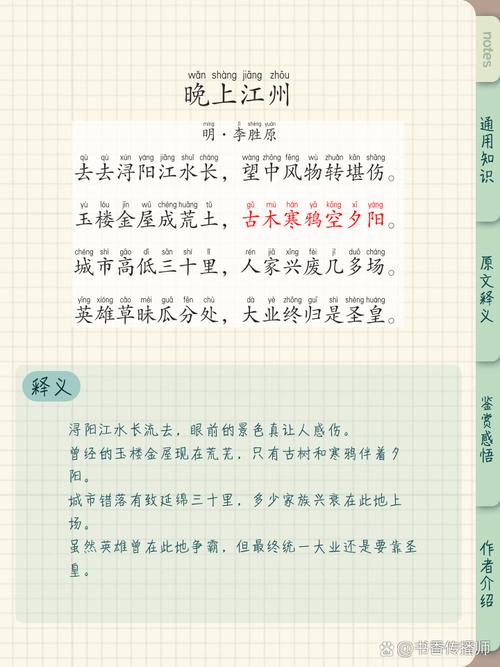 notes
wǎn shàng jiāng zhōu
晚上江州
míng lǐ shèng yuán
明·李胜原
qù qù xún yáng jiāng shuǐ cháng wàng zhōng fēng wù zhuǎn kān shāng
去去浔阳江水长，望中风物转堪伤。
yù lóu jīn wū chéng huāng tǔ gǔ mù hán yā kōng xī yáng
玉楼金屋成荒土，古木寒鸦空夕阳。
chéng shì gāo dī sān shí lǐ rén jiā xīng fèi jǐ duō chǎng
城市高低三十里，人家兴废几多场。
yīng xióng cǎo mèi guā fēn chù dà yè zhōng guī shì shèng huáng
英雄草昧瓜分处，大业终归是圣皇。
释义
浔阳江水长流去，眼前的景色真让人感伤。
曾经的玉楼金屋现在荒芜，只有古树和寒鸦伴着夕
阳。
城市错落有致延绵三十里，多少家族兴衰在此地上
场。
虽然英雄曾在此地争霸，但最终统一大业还是要靠圣
皇。
通用知识
原文释义
鉴赏感悟
作者介绍
书香传播师